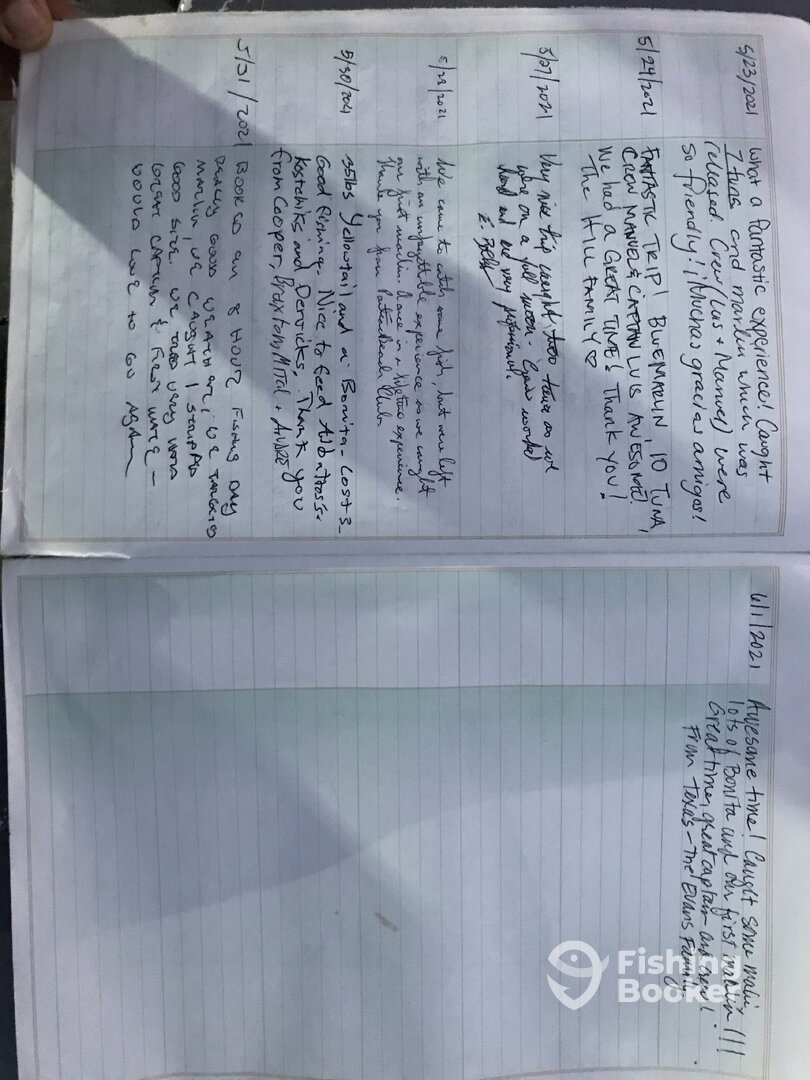 5/23/2021
What a fantastic experience! Caught
7 tuna and marlin which was
released. Crew (Luis + Manuel) were
so friendly! ¡Muchas gracias amigos!
5/24/2021
FANTASTIC TRIP! BLUE MARLIN, 10 TUNA,
CREW MANUEL & CAPTAIN LUIS AWESOME!
We had a GREAT TIME! Thank you!
The Hill FAMILY ♡
5/27/2021
Very nice trip caught two tuna as we
were on a full moon. Crew worked
hard and are very professional.
5/28/2021
We came to catch some fish, but we left
with an unforgettable experience as we caught
our first marlin. Once in a lifetime experience.
Thank you from
5/30/2021
35lbs Yellowtail and a Bonita - Lost 3
Good fishing. Nice to feed
and Derricks. Thank you
from Cooper, Braxton, + André
5/31/2021
BOOKED an 8 HOUR FISHING DAY
REALLY GOOD WEATHER, WE TARGETED
MARLIN, WE CAUGHT 1 STRIPED
GOOD SIZE. WE TRIED VERY HARD
GREAT CAPTAIN & FIRST MATE -
WOULD LOVE TO GO AGAIN
6/1/2021
Awesome time! Caught some mahi
lots of Bonita and our first marlin!!!
Great time, great captain and crew!
From Texas - The Evans Family.
Fishing
Booker